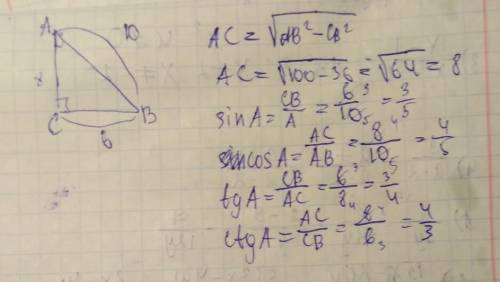 A
10
x
C
B
6
AC = √AB² − CB²
AC = √100 − 36 = √64 = 8
sin A = CB/A = 6³/10₅ = 3/5
cos A = AC/AB = 8⁴/10₅ = 4/5
tg A = CB/AC = 6³/8₄ = 3/4
ctg A = AC/CB = 8⁴/6₃ = 4/3